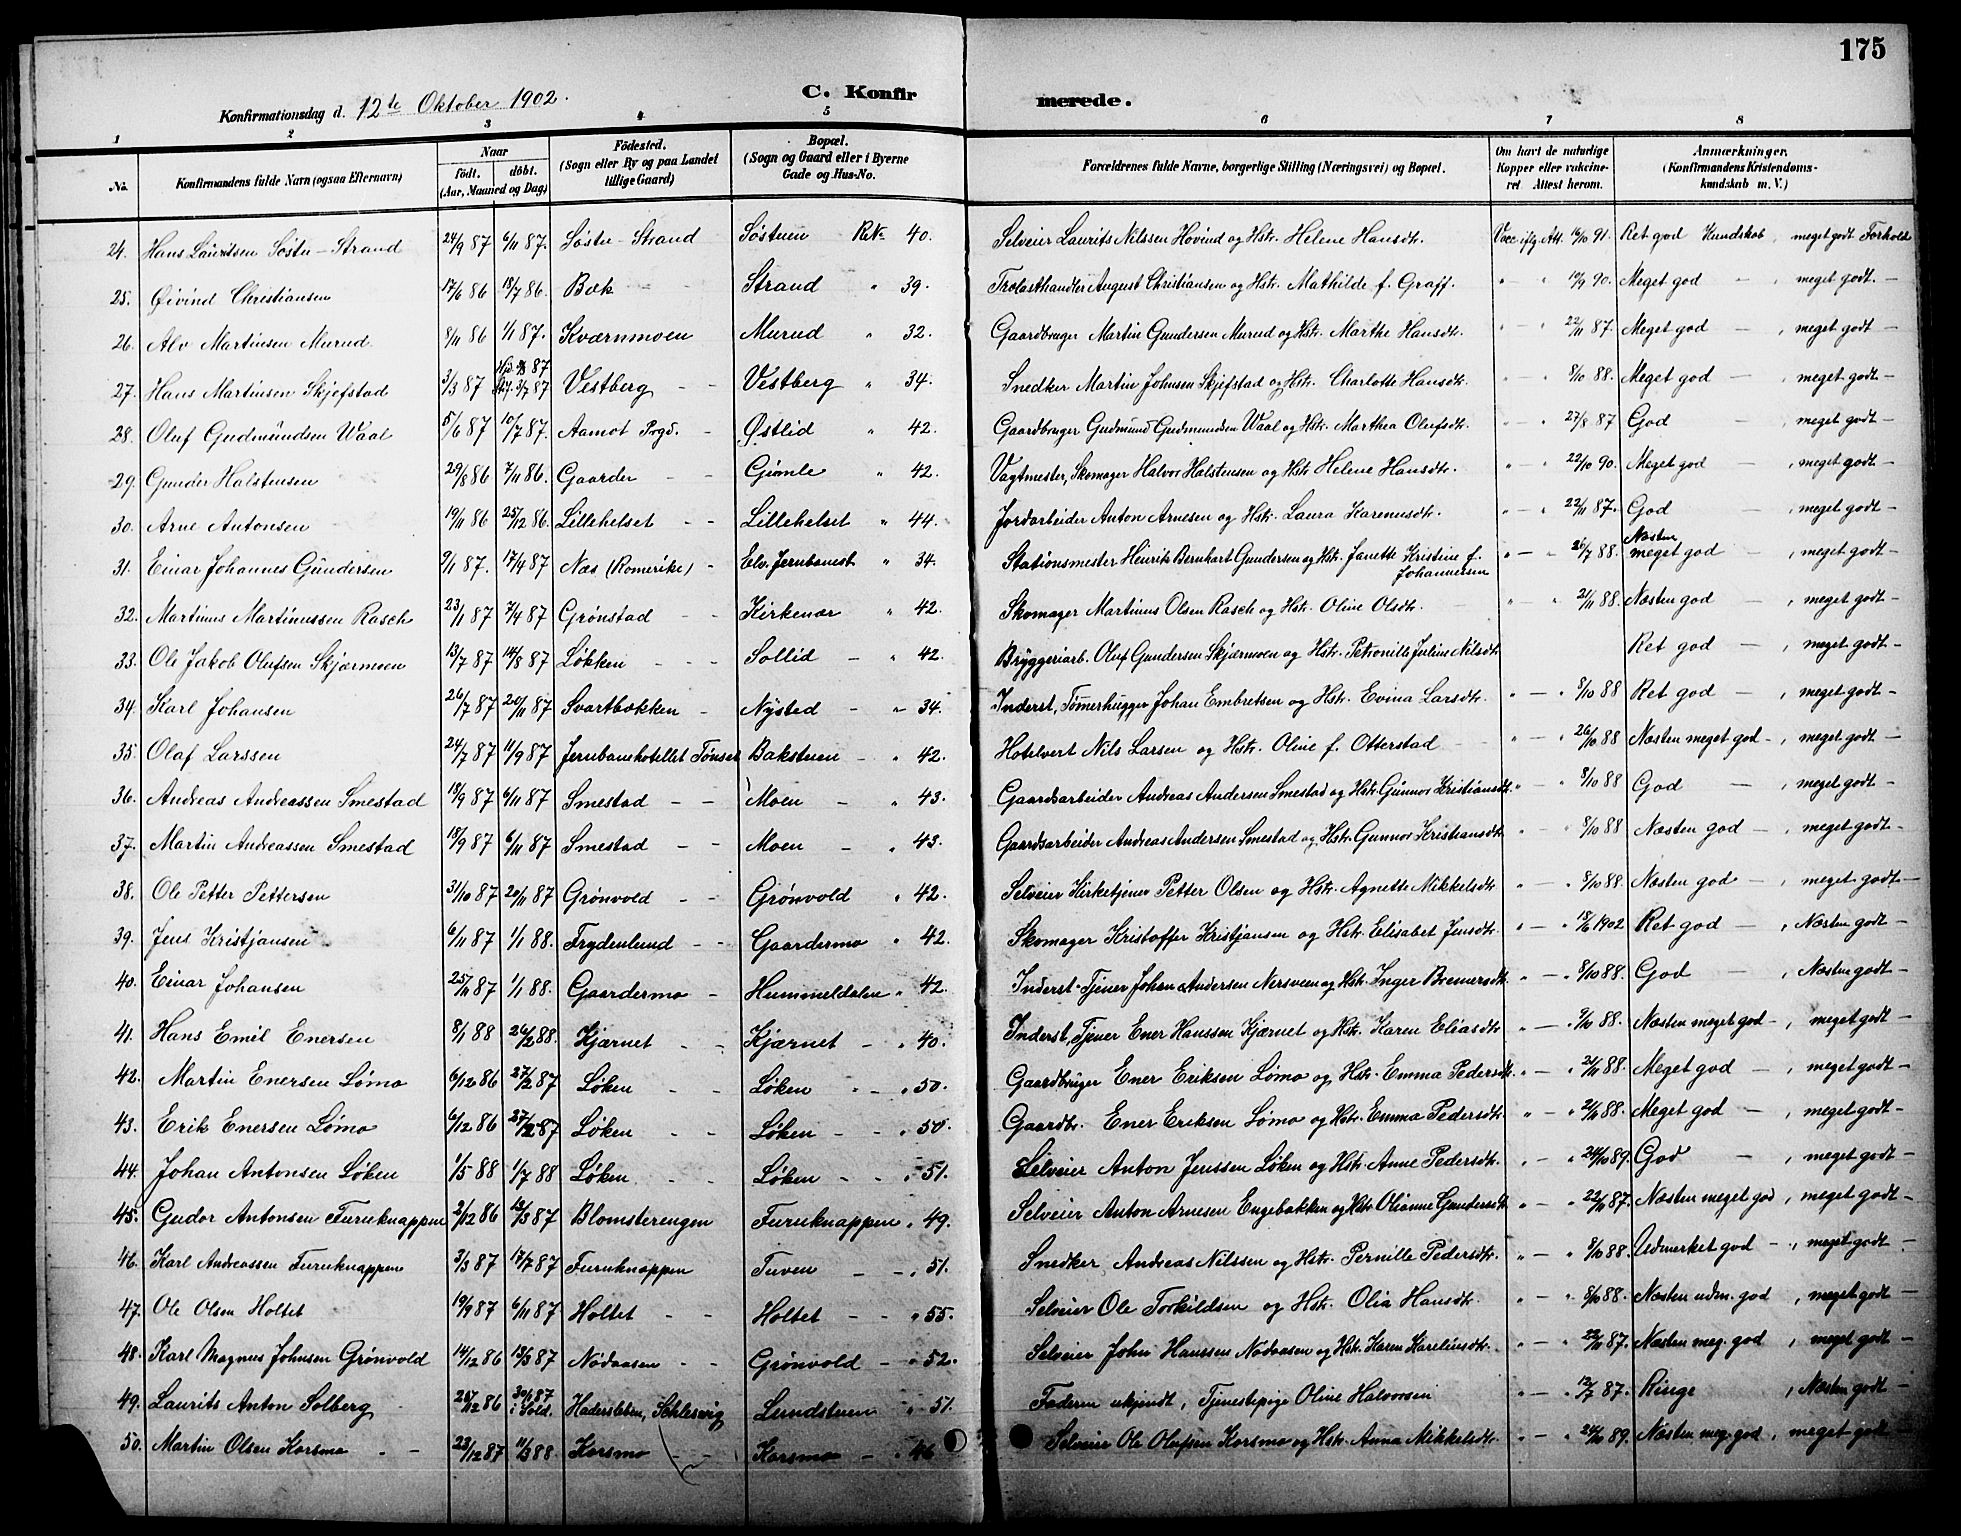 175
Konfirmationsdag d. 12te Oktober 1902. C. Konfirmerede.
1 2 3 4 5 6 7 8
No. Konfirmandens fulde Navn (ogsaa Efternavn) Naar født. døbt. (Aar, Maaned og Dag) Fødested. (Sogn eller By og paa Landet tillige Gaard) Bopæl. (Sogn og Gaard eller i Byerne Gade og Hus-No. Forældrenes fulde Navne, borgerlige Stilling (Næringsvei) og Bopæl. Om havt de naturlige Kopper eller vakcineret. Attest herom. Anmærkninger. (Konfirmandens Kristendomskundskab m. V.)
24. Hans Lauritsen Søstu-Strand 24/9 87 6/11 87. Søstu-Strand Søstuen 40. Selveier Laurits Nilssen Hovind og Hstr. Helene Hansdt. Vacc. iflg. Att. 16/10 91. Ret god Kundskab, meget godt Forhold
25. Øivind Christiansen 17/6 86 18/7 86. Bæk Strand " 39. Trelasthandler August Christiansen og Hstr. Mathilde f. Graff. " — " 10/9 90. Meget god — , meget godt —
26. Alv Martinsen Murud 8/11 86 1/1 87. Kværnmoen Murud " 32. Gaardbruger Martin Gundersen Murud og Hstr. Marthe Hansdt. " — " 22/11 87. Meget god — , meget godt —
27. Hans Martinsen Skjefstad 3/3 87 3/7 87 Vestberg - - Vestberg " 34. Snedker Martin Johnsen Skjefstad og Hstr. Charlotte Hansdt. " — " 8/10 88. Meget god — , meget godt —
28. Oluf Gudmundsen Waal 5/6 87 10/7 87. Aamot Prgd. - Østlid " 42. Gaardbruger Gudmund Gudmundsen Waal og Hstr. Marthea Olufsdt. " — " 27/8 87 God — , meget godt —
29. Gunder Halstensen 29/8 86 7/11 86. Gaarder - - Gimle " 42. Vagtmester, Skomager Halvor Halstensen og Hstr. Helene Hansdt. " — " 22/10 90. Meget god — , meget godt —
30. Arne Antonsen 19/11 86 25/12 86. Lillehelset - - Lillehelset " 44. Jordarbeider Anton Arnesen og Hstr. Laura Karenusdt. " — " 22/11 87. God — , meget godt —
31. Einar Johannes Gundersen 9/1 87. 17/4 87 Næs (Romerike) - Elv. Jernbanest " 34. Stationsmester Henrik Bernhart Gundersen og Hstr. Janette Kristine f. Johannersen " — " 26/7 88. Næsten meget god — , meget godt —
32. Martinus Martinussen Rasch 23/1 87 7/4 87 Grønstad - - Kirkenær " 42. Skomager Martinus Olsen Rasch og Hstr. Oline Olsdt. " — " 21/11 88. Næsten god — , meget godt —
33. Ole Jakob Olufsen Skjærmoen 13/7 87 14/8 87 Løkken - - - Sollid — " 42. Bryggeriarb. Oluf Gundersen Skjærmoen og Hstr. Petronille Juline Nilsdt Ret god — , meget godt —
34. Karl Johansen 26/7 87 20/11 87 Svartbækken - Nysted — " 34. Inderst, Tømmerhugger Johan Embretsen og Hstr. Evina Larsdt. " — " 8/10 88 Ret god — , meget godt —
35. Olaf Larssen 24/7 87 11/9 87 Jernbanehotellet Tønset Bakstuen — " 42. Hotelvert Nils Larsen og Hstr. Oline f. Otterstad " — " 26/10 88 Næsten meget god — , meget godt —
36. Andreas Andreassen Smestad 18/9 87 6/11 87 Smestad - - Moen — " 43. Gaardsarbeider Andreas Andersen Smestad og Hstr. Gunnor Kristiansdt. " — " 8/10 88 God — , meget godt —
37. Martin Andreassen Smestad 18/9 87 6/11 87 Smestad - - Moen — " 43. Gaardsarbeider Andreas Andersen Smestad og Hstr. Gunnor Kristiansdt. " — " 8/10 88 Næsten god — , meget godt —
38. Ole Petter Pettersen 31/10 87 20/11 87 Grønvold - - Grønvold " 42. Selveier Kirketjener Petter Olsen og Hstr. Agnette Mikkelsdt. " — " 8/10 88. Næsten god — , meget godt —
39. Jens Kristjansen 6/11 87 1/1 88. Frydenlund - - Gaardermo " 42. Skomager Kristoffer Kristjansen og Hstr. Elisabet Jensdt. " — " 18/6 1902 Ret god — , Næsten godt —
40. Einar Johansen 25/11 87 1/1 88. Gaardermo - Hummeldalen " 42. Inderst-Tjener Johan Andersen Nersveen og Hstr. Inger Bremersdt " — " 8/10 88. God — , Næsten godt —
41. Hans Emil Enersen 8/1 88 26/2 88. Kjærnet - - Kjærnet — " 40. Inderst, Tjener Ener Hanssen Kjærnet og Hstr. Karen Eliasdt. " — " 9/10 88. Næsten meget god — , meget godt —
42. Martin Enersen Lømo 6/12 86 27/2 87 Løken - - Løken " - " 50. Gaardbruger Ener Eriksen Lømo og Hstr. Emma Pedersdt. " — " 21/11 88. Meget god — , meget godt —
43. Erik Enersen Lømo 6/12 86 27/2 87 Løken - - Løken - - " 50. Gaardbr. Ener Eriksen Lømo og Hstr. Emma Pedersdt. " — " 21/11 88. Meget god — , meget godt —
44. Johan Antonsen Løken 1/5 88 1/7 88 Løken - - Løken - - " 51. Selveier Anton Jenssen Løken og Hstr. Anne Pedersdt. " — " 24/10 89. God — , meget godt —
45. Gudor Antonsen Furuknappen 2/12 86 12/3 87 Blomsterengen Furuknappen " 49. Selveier Anton Arnesen Engebakken og Hstr. Olianne Gundersdt " — " 22/11 87. Næsten meget god , meget godt —
46. Karl Andreassen Furuknappen 3/3 87 17/7 87 Furuknappen Tuven — - " 51. Snedker Andreas Nilssen og Hstr. Pernille Pedersdt. " — " 8/10 88. Udmerket god - , meget godt —
47. Ole Olsen Holtet 19/9 87 6/11 87 Holtet - - Holtet — - " 55. Selveier Ole Torkildsen og Hstr. Olia Hansdt. " — " 8/10 88. Næsten udm. god , meget godt —
48. Karl Magnus Johnsen Grønvold 14/12 86 13/3 87 Nødaasen - - Grønvold — " 52. Selveier John Hanssen Nødaasen og Hstr. Karen Kareliusdt. " — " 22/11 87. Næsten meg. god , meget godt —
49. Laurits Anton Solberg 26/12 86 30/1 87 i Vold. Hadersleben, Schleswig Lundstuen " 51. Faderen ukjendt, Tjenestepige Oline Halvorsen " — " 12/7 87. Ringe , Næsten godt —
50. Martin Olsen Korsmo - - 23/12 87 11/3 88 Korsmo - - Korsmo — " 46 Selveier Ole Olufsen Korsmo og Hstr. Anna Mikkelsdt. " — " 24/10 89. Næsten meg. god , meget godt —